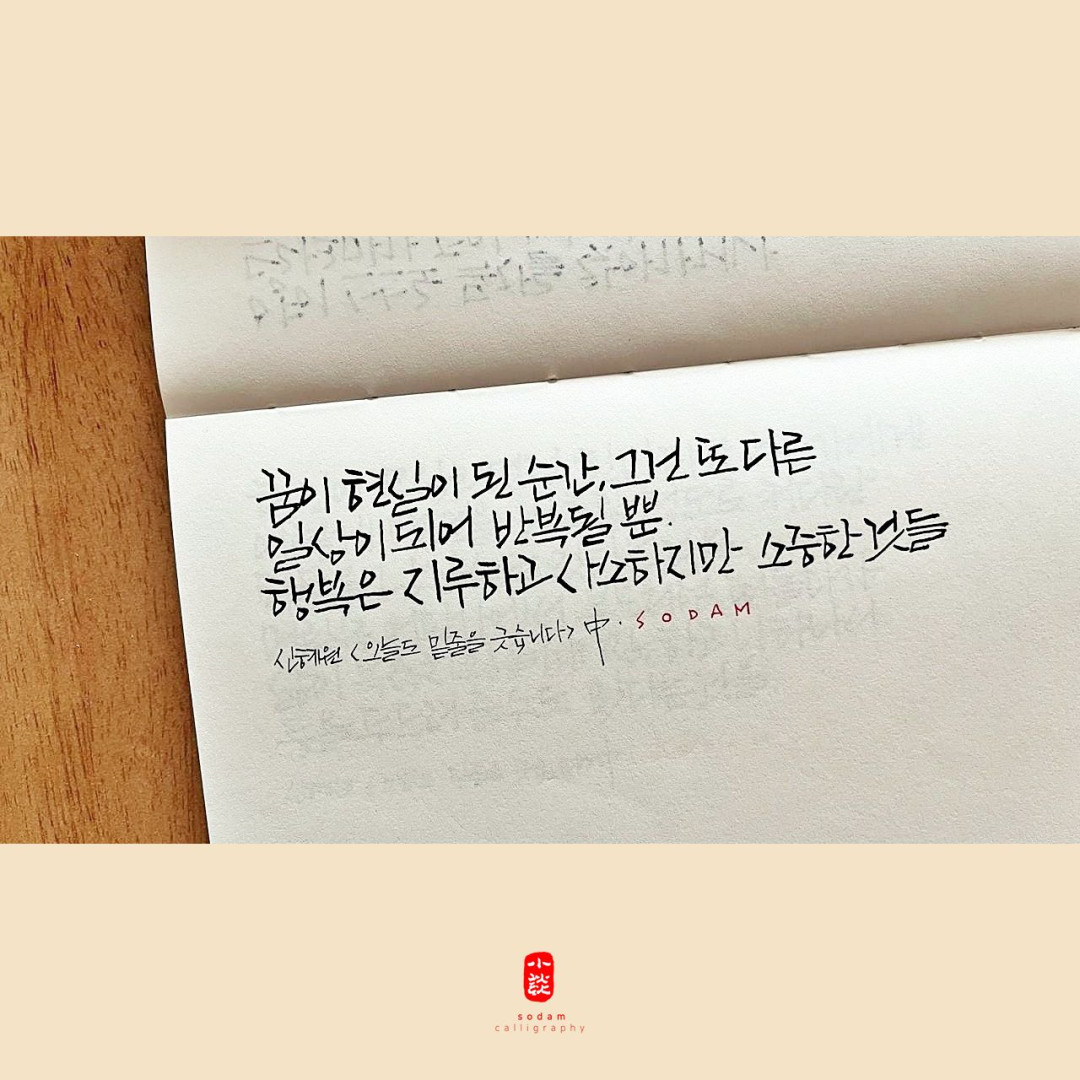 꿈이 현실이 된 순간, 그건 또 다른
일상이 되어 반복될 뿐.
행복은 지루하고 사소하지만 소중한 것들
신혜원 <오늘도 밑줄을 긋습니다> 中. SODAM
小談
sodam
calligraphy